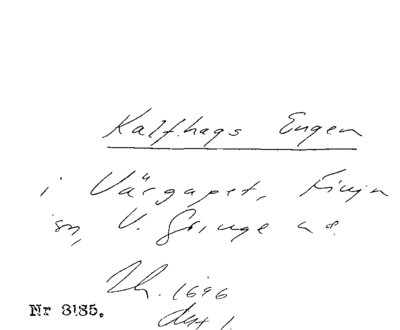 Kalfhags Engen
i Värgapet, Finja
sn, V. Göinge hd.
1696
Nr 8185.